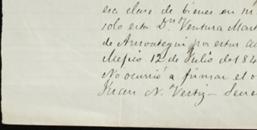 esa clase de bienes en m
solo esta D.ⁿ Ventura Mart
de Arrovategui por estar au
Mexico 12 de Julio de 184
No ocurrió a firmar el o
Juan N. Vertiz